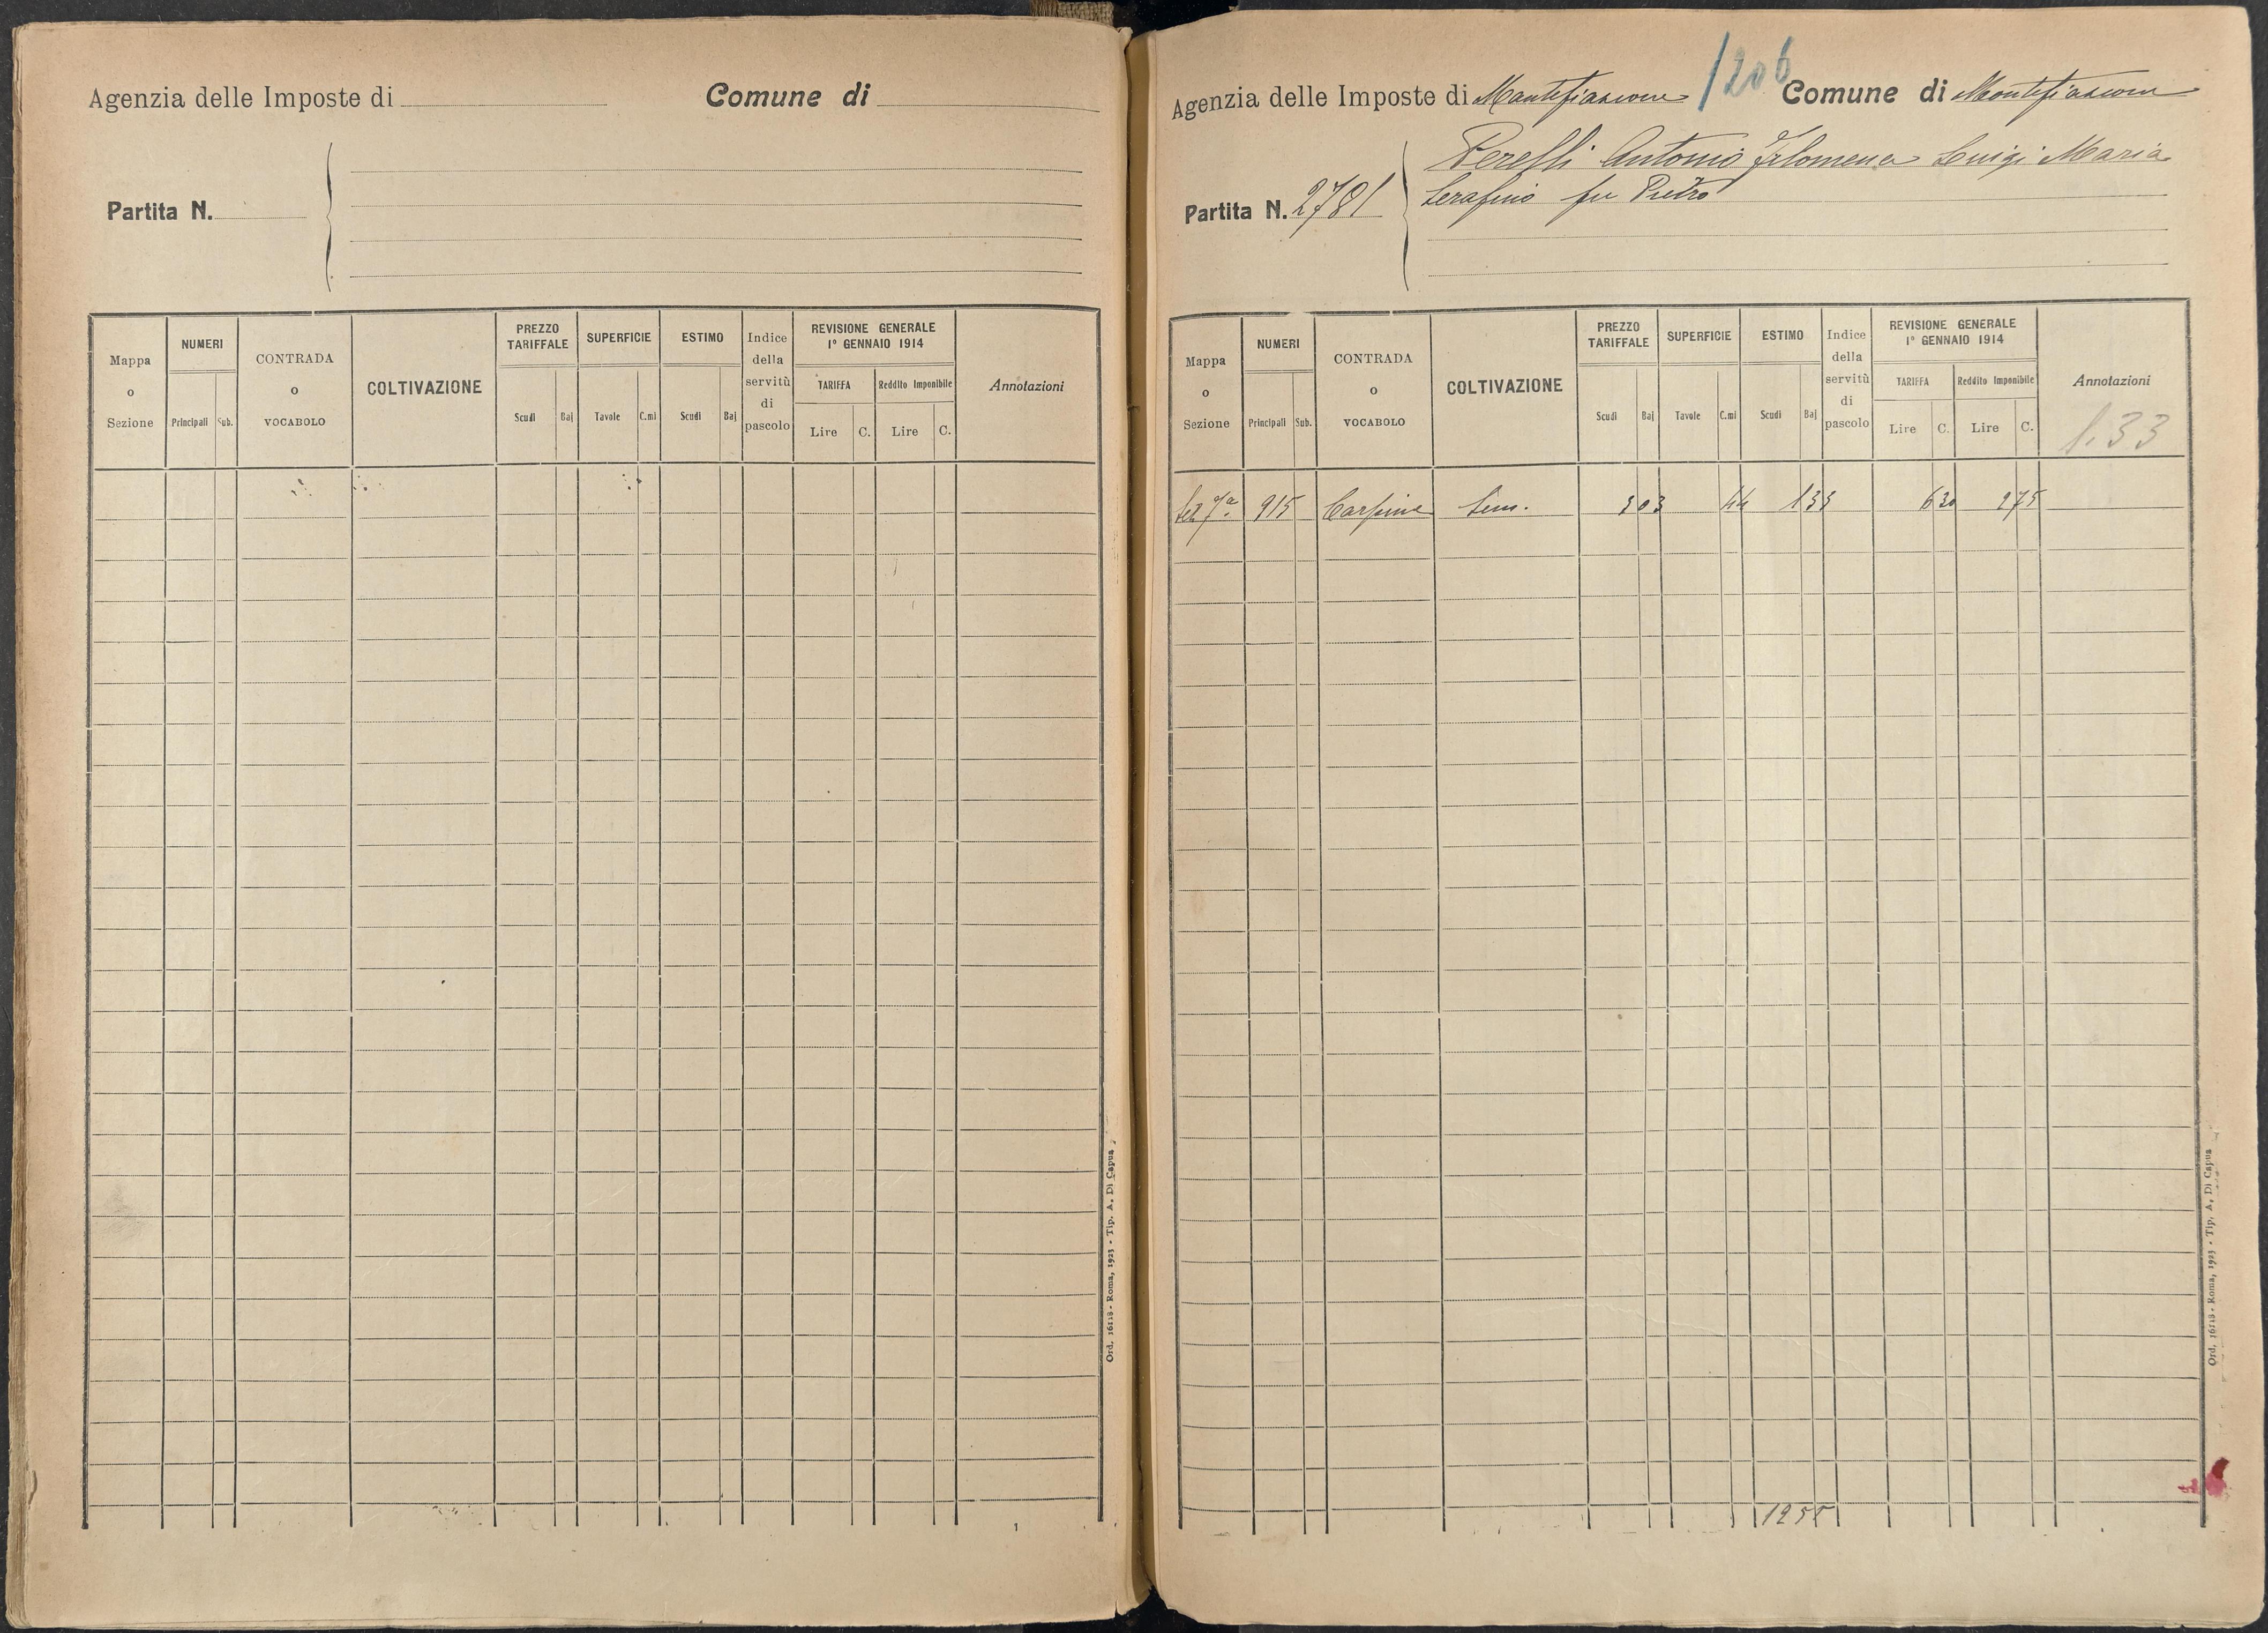 Agenzia delle Imposte di
Comune di
Partita N.
Mappa o Sezione
NUMERI
Principali
Sub.
CONTRADA o VOCABOLO
COLTIVAZIONE
PREZZO TARIFFALE
Scudi
Baj
SUPERFICIE
Tavole
C.mi
ESTIMO
Scudi
Baj
Indice della servitù di pascolo
REVISIONE GENERALE
1° GENNAIO 1914
TARIFFA
Reddito Imponibile
Lire
C.
Lire
C.
Annotazioni
Ord. 16118 - Roma, 1923 - Tip. A. Di Capua
1206
Agenzia delle Imposte di Montefiascone
Comune di Montefiascone
Partita N. 2781
Perelli Antonio Filomena Luigi Maria
Serafino fu Pietro
Mappa o Sezione
NUMERI
Principali
Sub.
CONTRADA o VOCABOLO
COLTIVAZIONE
PREZZO TARIFFALE
Scudi
Baj
SUPERFICIE
Tavole
C.mi
ESTIMO
Scudi
Baj
Indice della servitù di pascolo
REVISIONE GENERALE
1° GENNAIO 1914
TARIFFA
Reddito Imponibile
Lire
C.
Lire
C.
Annotazioni
1.33
Sez 7ª 915 Carpine Sem. 303 44 133 630 275
Ord. 16118 - Roma, 1923 - Tip. A. Di Capua